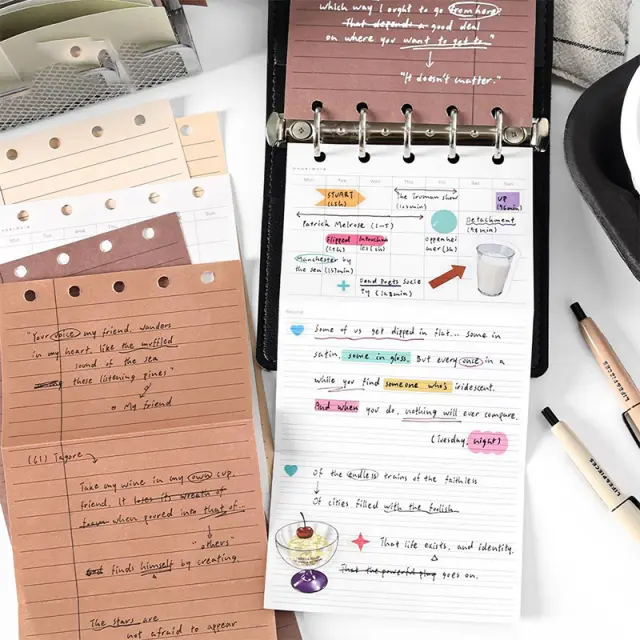 which way I ought to go from here
That depends a good deal
on where you want to get to."
"It doesn't matter."
Mon Tue Wed Thu Fri Sat Sun
STUART
(25h)
The Truman show
(103min)
UP
(96min)
Patrick Melrose (1-5)
Detachment
(98min)
Flipped
Manchester by
the sea (137min)
oppenhei
mer (3h)
Dead Poets Socie
ty (128min)
Some of us get dipped in flat... some in
satin, some in gloss. But every once in a
while you find someone who's iridescent.
And when you do, nothing will ever compare.
(Tuesday, night)
Of the (endless) trains of the faithless
Of cities filled with the foolish
That life exists, and identity.
That the powerful play goes on.
"Your voice my friend, wanders
in my heart, like the muffled
sound of the sea
these listening pines"
My friend
(61) Tagore
Take my wine in my own cup,
friend. It loses its wreath of
foam when poured into that of...
"others"
finds himself by creating.
The stars are
not afraid to appear
KIPS&PIECES
KIPS&PIECES